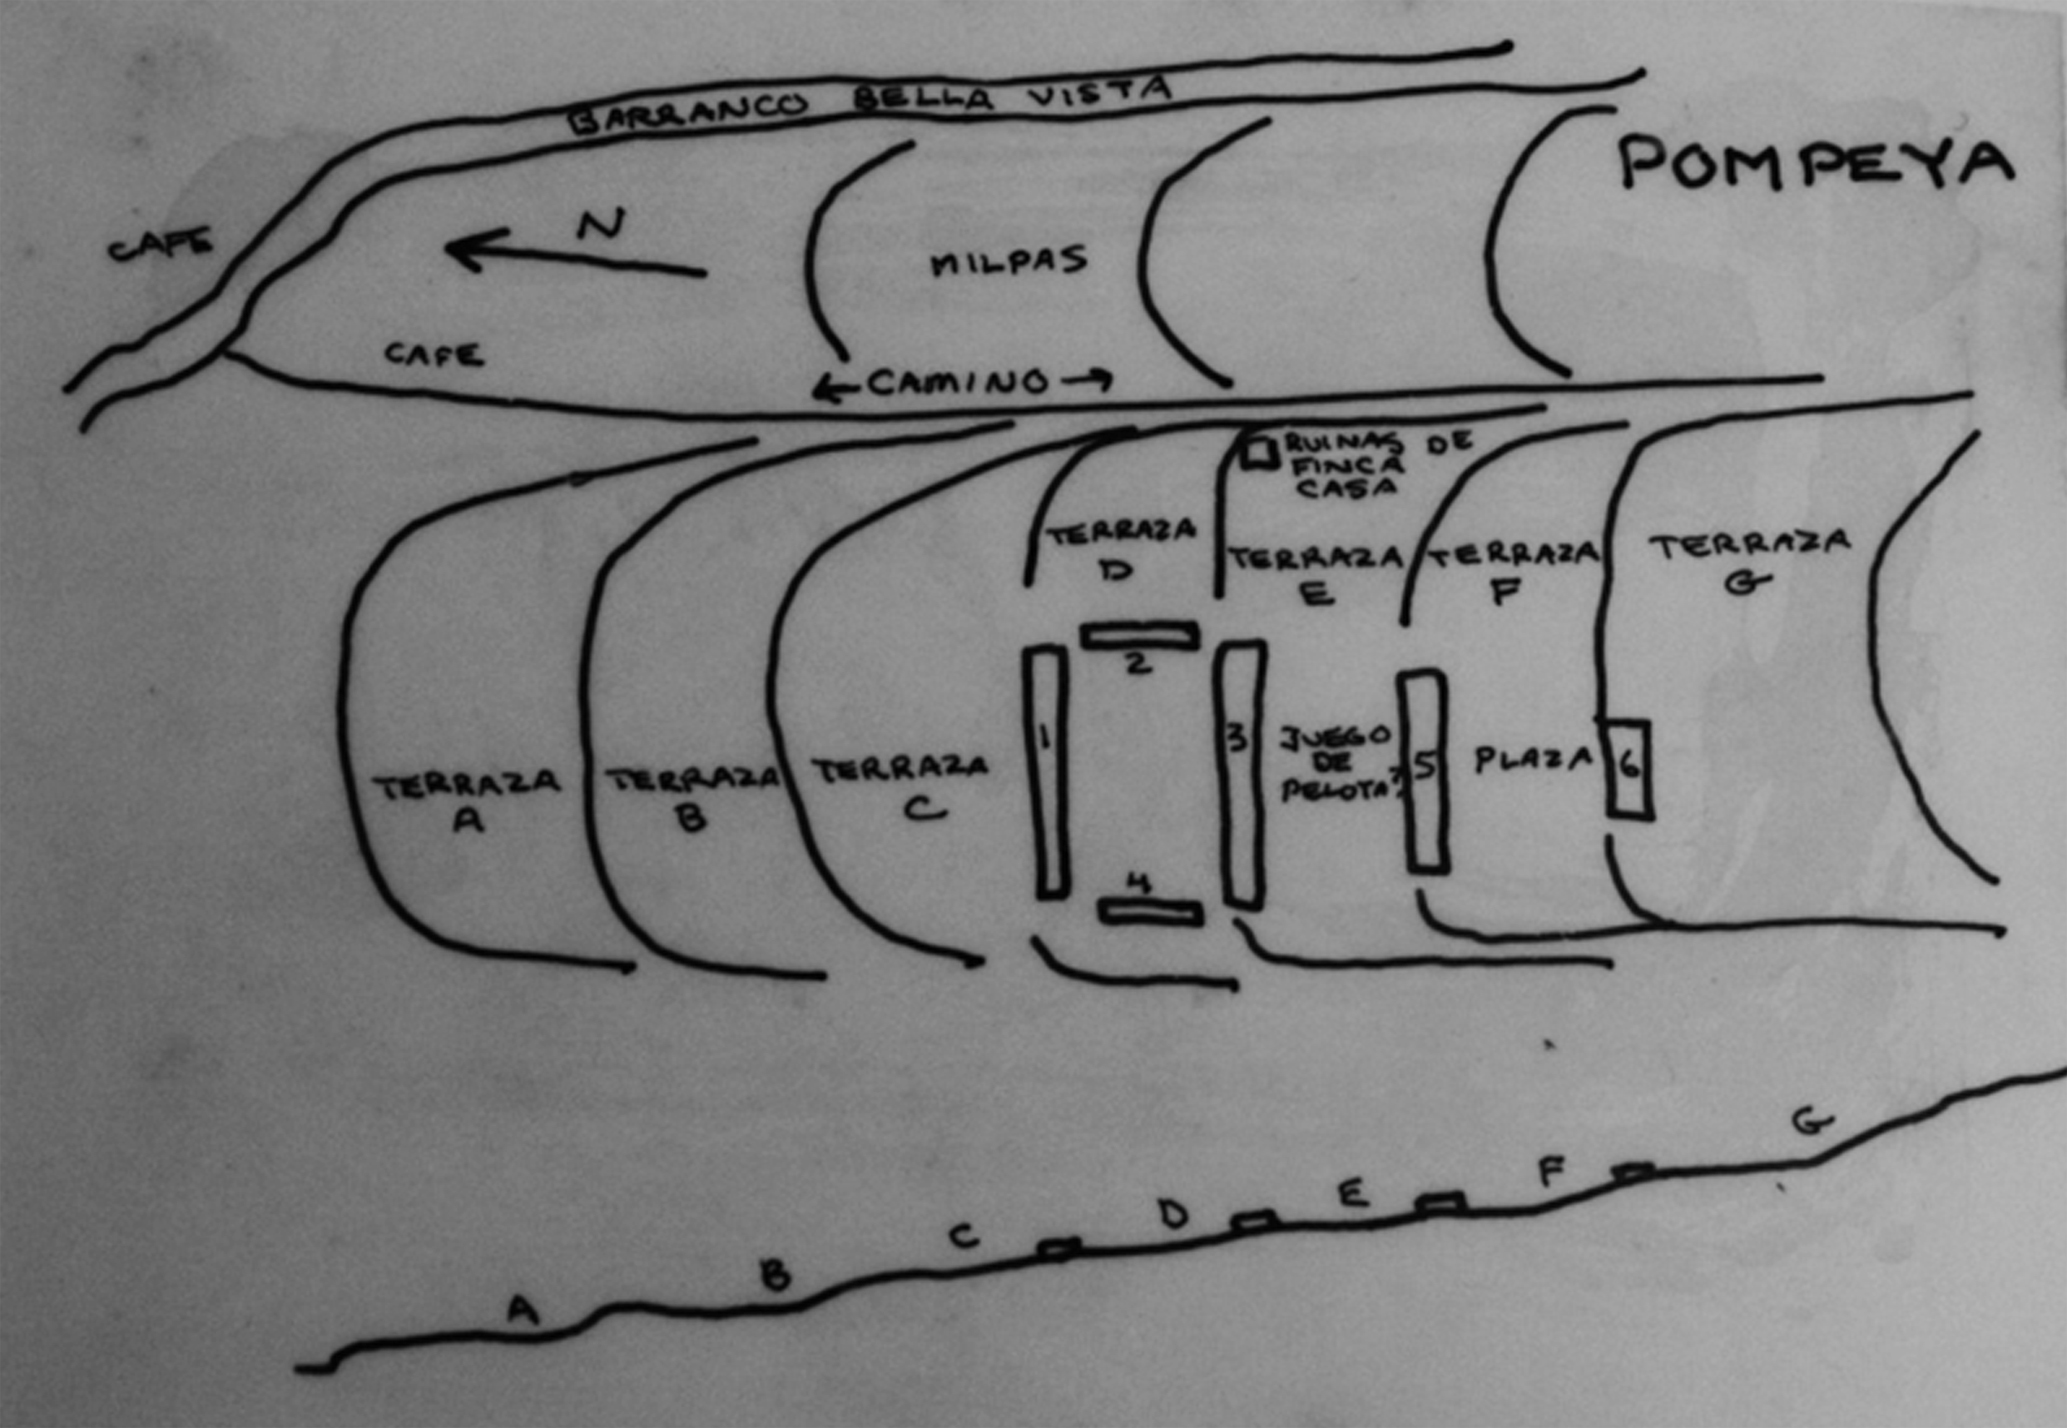 BARRANCO BELLA VISTA
POMPEYA
CAFE
N
MILPAS
CAFE
CAMINO
RUINAS DE
FINCA
CASA
TERRAZA
D
TERRAZA
E
TERRAZA
F
TERRAZA
G
2
1
3
JUEGO
DE
PELOTA?
5
PLAZA
6
TERRAZA
A
TERRAZA
B
TERRAZA
C
4
A
B
C
D
E
F
G